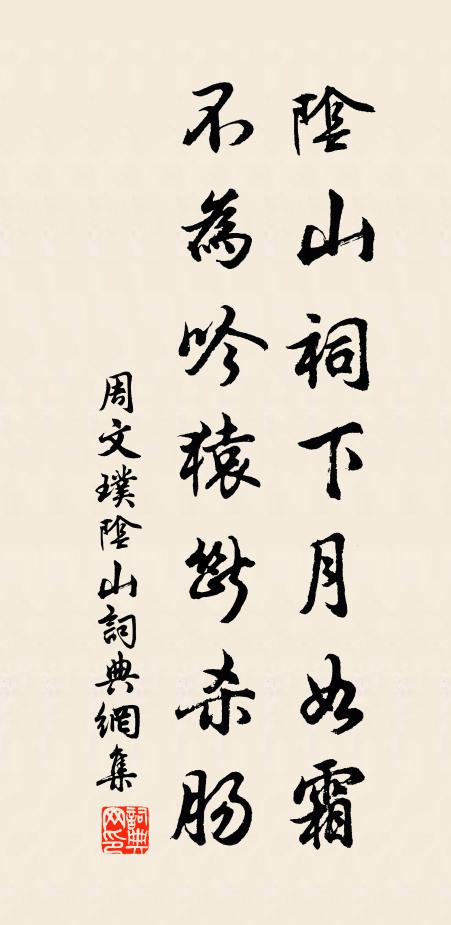 陰山祠下月如霜
不為吟猿斷殺腸
周文璞陰山詞典網集
詞典网印